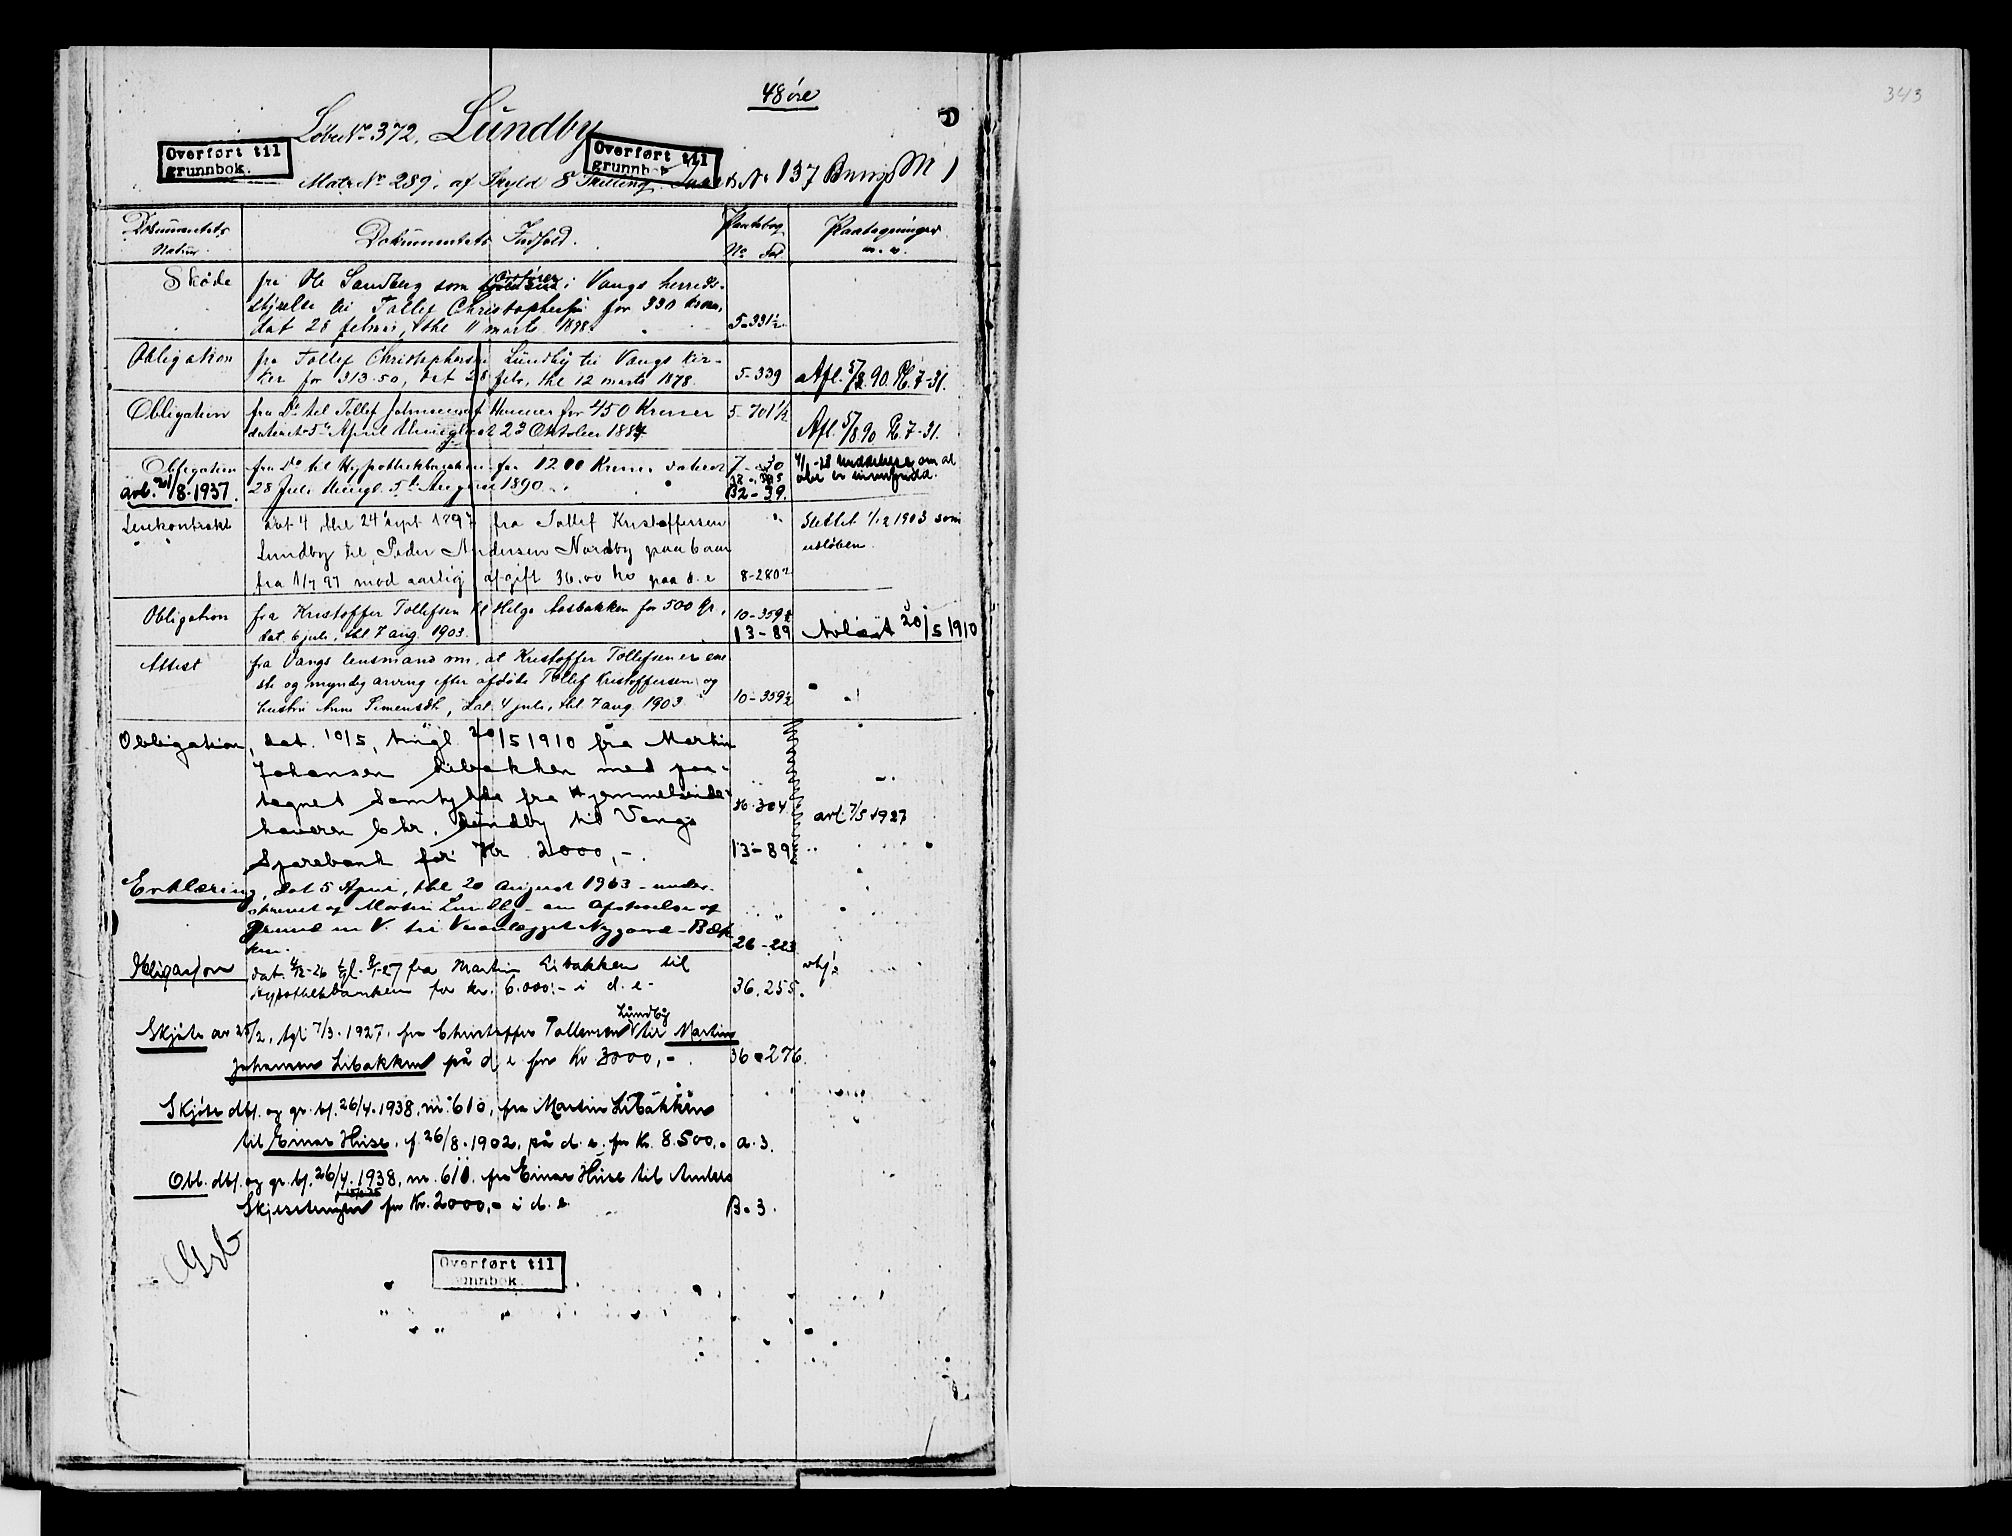 48 øre
343
LøbeNo 372. Lundby
Overført til
grunnbok.
Overført til
grunnbok
Matr No 289. af Skyld 8 Skilling. No 137 Brugs No 1
Dokumentets
Natur.
Dokumentets Indhold.
Pantebog
No Fol.
Paategninger
m. v.
Skøde
fra Ole Sandberg som Ordfører i Vangs herreds-
styrelse til Tollef Christophersen for 330 kroner,
dat 28 februar, thl 11 marts 1878.
5-331½
Obligation
fra Tollef Christophersen Lundby til Vangs Kir-
ker for 313.50, dat 28 febr, thl 12 marts 1878.
5-339
Afl. 5/8 90. Pb. 7-31.
Obligation
fra Do til Tollef Johnsen af Hommer for 450 Kroner
dateret 5te April thinglæst 23 Oktober 1884
5-701½
Afl. 5/8 90 Pb. 7-31.
Obligation
avl. 21/8-1937.
fra Do til Hypothekbanken for 1200 Kroner dateret
28 Juli thingl. 5te August 1890.
7-30
32-39.
4/1-28 meddelelse om at
obl. er innfridd.
Leiekontrakt
dat 4 thl 24 sept 1897 fra Tollef Kristoffersen
Lundby til Peder Andersen Nordby paa 6 aar
fra 1/7 97 mod aarlig afgift 36.00 kr paa d. e
8-280
Slettet 1/12 1903 som
udløben.
Obligation
fra Kristoffer Tollefsen til Helge Aasbakken for 500 kr.
dat. 6 juli, thl 7 aug. 1903.
10-359½
13-89
Avlæst 20/5 1910
Attest
fra Vangs lensmand om, at Kristoffer Tollefsen er ene-
ste og myndig arving efter afdøde Tollef Kristoffersen og
hustru Anne Simensdt, dat. 4 juli, thl 7 aug. 1903
10-359½
Obligation, dat. 10/5, tingl. 20/5 1910 fra Martin
Johansen Libakken med paa-
tegnet Samtykke fra Hjemmelsinde-
haveren Chr. Lundby til Vangs
Sparebank for Kr 2000,-.
10-304
13-89
avl. 7/5 1927
Erklæring, dat 5 April, thl 20 August 1913 - under-
skrevet af Martin Lundby - om Afstaaelse af
Grund m V. til Veianlægget Nygaard-Bæk-
ken.
26-223
Obligasjon
dat. 4/12-26 tgl. 8/1-27 fra Martin Libakken til
Hypothekbanken for kr. 6.000:- i d. e-
36.255.
Skjøte av 25/2, tgl 7/3-1927. fra Christoffer Tollefsen Lundby til Martin
Johansen Libakken på d. e for Kr 3000,-
36-276.
Skjøte dbf. og gr. bf. 26/4-1938, nr. 610, fra Martin Libakken
til Einar Huse, f. 26/8-1902, på d. e. for Kr. 8.500,-
a.3.
Obl. dbf. og gr. bf. 26/4-1938, nr. 611, fra Einar Huse til Anders
for Kr. 2000,- i d. e
B.3.
Overført til
grunnbok.